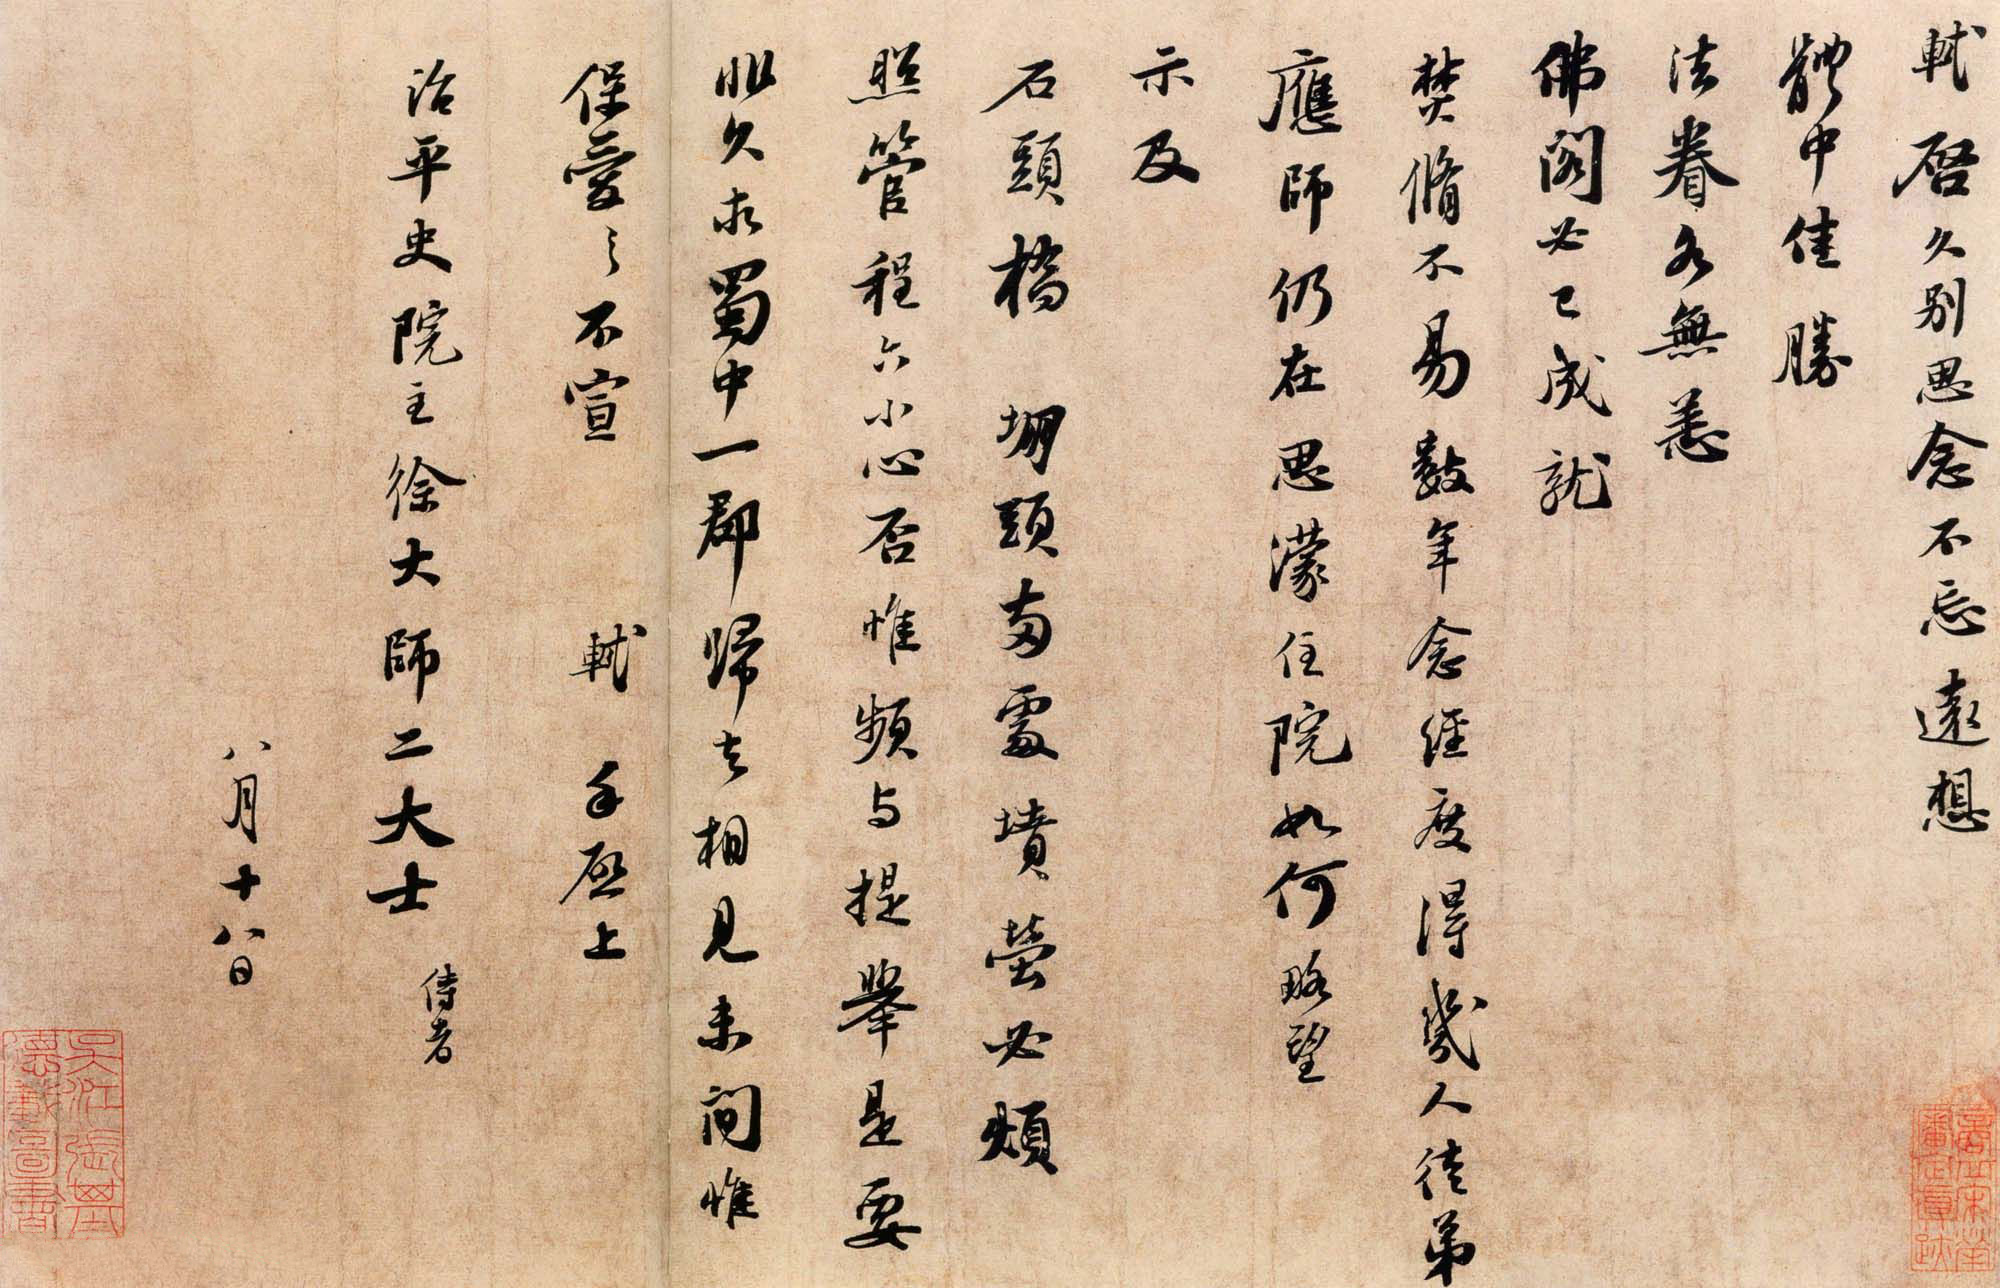 軾啓久別思念不忘遠想
體中佳勝
法眷各無恙
佛閣必已成就
焚脩不易數年念經度得幾人徒弟
應師仍在思濛住院如何略望
示及
石頭橋 堋頭兩處墳塋必煩
照管程六小心否惟頻与提舉是要
非久求蜀中一郡歸去相見未間惟
保愛之不宣 軾 手啓上
治平史院主徐大師二大士 侍者
八月十八日
商丘宋犖
審定真跡
吳江張基
德載圖書